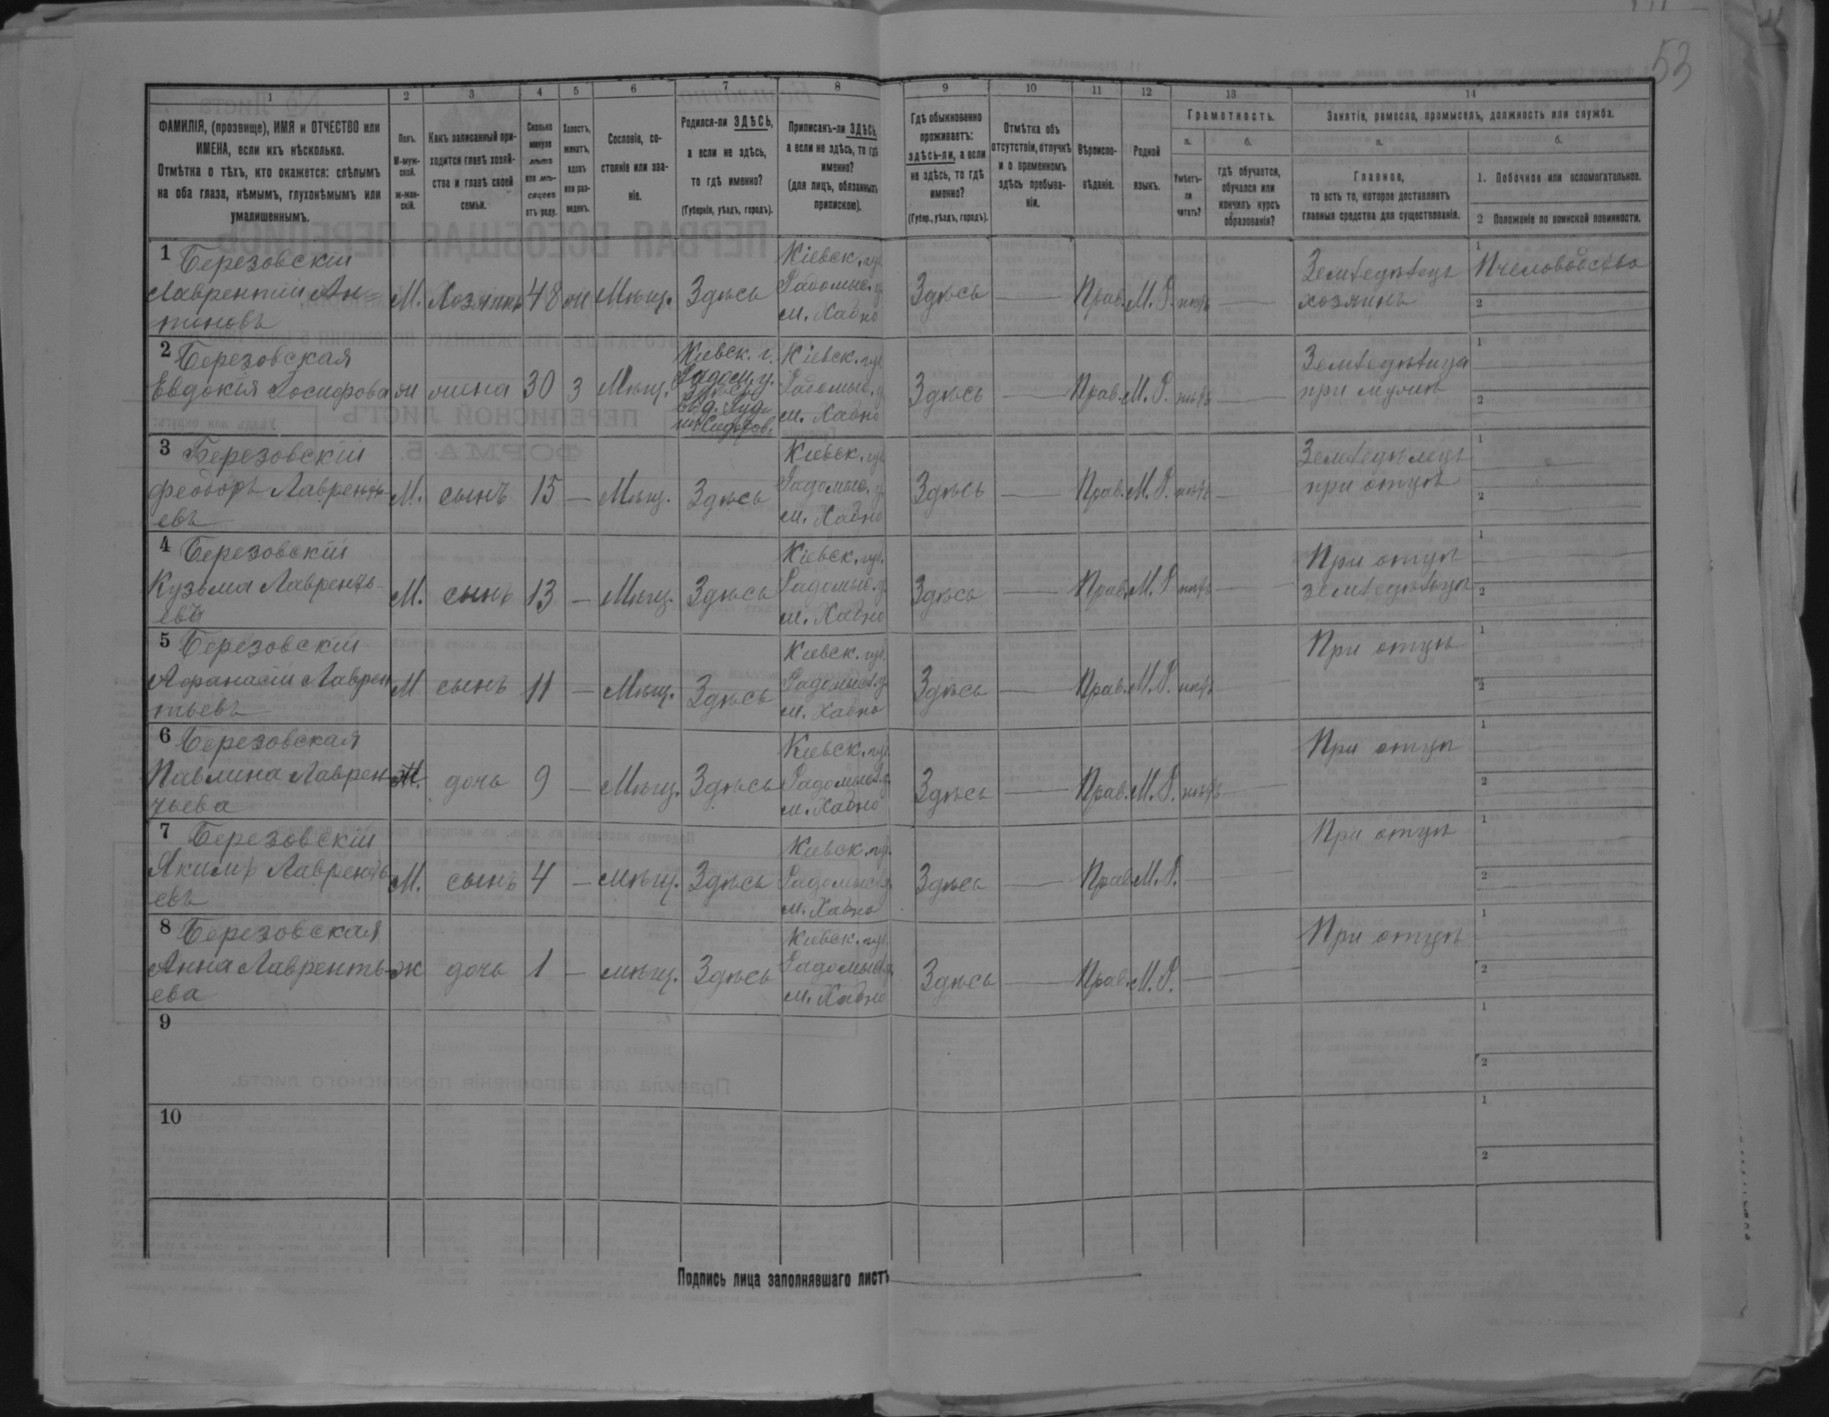 53
1 2 3 4 5 6 7 8 9 10 11 12 13 14
ФАМИЛІЯ, (прозвище), ИМЯ и ОТЧЕСТВО или
ИМЕНА, если ихъ нѣсколько.
Отмѣтка о тѣхъ, кто окажется: слѣпымъ
на оба глаза, нѣмымъ, глухонѣмымъ или
умалишеннымъ.
Полъ.
М-муж-
ской.
ж-жен-
скій.
Какъ записанный при-
ходится главѣ хозяй-
ства и главѣ своей
семьи.
Сколько
минуло
лѣтъ
или мѣ-
сяцевъ
отъ роду.
Холостъ,
женатъ,
вдовъ
или раз-
веденъ.
Сословіе, со-
стояніе или зва-
ніе.
Родился-ли ЗДѢСЬ,
а если не здѣсь,
то гдѣ именно?
(Губернія, уѣздъ, городъ).
Приписанъ-ли ЗДѢСЬ,
а если не здѣсь, то гдѣ
именно?
(для лицъ, обязанныхъ
припискою).
Гдѣ обыкновенно
проживаетъ:
здѣсь-ли, а если
не здѣсь, то гдѣ
именно?
(Губер., уѣздъ, городъ).
Отмѣтка объ
отсутствіи, отлучкѣ
и о временномъ
здѣсь пребыва-
ніи.
Вѣроиспо-
вѣданіе.
Родной
языкъ.
Грамотность.
а.
Умѣетъ-
ли
читать?
б.
гдѣ обучается,
обучался или
кончилъ курсъ
образованія?
Занятіе, ремесло, промыселъ, должность или служба.
а.
Главное,
то есть то, которое доставляетъ
главныя средства для существованія.
б.
1. Побочное или вспомогательное.
2 Положеніе по воинской повинности.
1 Березовскій
Лаврентій Ан-
тоновъ
М. Хозяинъ 48 ж Мѣщ. Здѣсь
Кіевск. губ.
Радомыс. у.
м. Хабно
Здѣсь — Прав. М. Р. нѣтъ —
Земледѣлецъ
хозяинъ
1 Пчеловодство
2
2 Березовская
Евдокія Іосифова
ж жена 30 з Мѣщ.
Кіевск. г.
Радом. у.
Кіевск. губ.
Радомыс. у.
м. Хабно
Здѣсь — Прав. М. Р. нѣтъ —
Земледѣлица
при мужѣ
1
2
3 Березовскій
Феодоръ Лаврентъ-
евъ
М. сынъ 15 — Мѣщ. Здѣсь
Кіевск. губ.
Радомыс. у.
м. Хабно
Здѣсь — Прав. М. Р. нѣтъ —
Земледѣлецъ
при отцѣ
1
2
4 Березовскій
Кузьма Лаврентъ-
евъ
М. сынъ 13 — Мѣщ. Здѣсь
Кіевск. губ.
Радомыс. у.
м. Хабно
Здѣсь — Прав. М. Р. нѣтъ —
При отцѣ
земледѣлецъ
1
2
5 Березовскій
Афанасій Лаврен
тьевъ
М сынъ 11 — Мѣщ. Здѣсь
Кіевск. губ.
Радомыс. у.
м. Хабно
Здѣсь — Прав. М. Р. нѣтъ
При отцѣ
1
2
6 Березовская
Павлина Лаврен
тьева
Ж. дочь 9 — Мѣщ. Здѣсь
Кіевск. губ.
Радомыс. у.
м. Хабно
Здѣсь — Прав. М. Р. нѣтъ —
При отцѣ
1
2
7 Березовскій
Якимъ Лаврентъ
евъ
М. сынъ 4 — мѣщ. Здѣсь
Кіевск. губ.
Радомыс. у.
м. Хабно
Здѣсь — Прав. М. Р. —
При отцѣ
1
2
8 Березовская
Анна Лавренть-
ева
ж дочь 1 — мѣщ. Здѣсь
Кіевск. губ.
Радомыс. у.
м. Хабно
Здѣсь — Прав. М. Р. —
При отцѣ
1
2
9
1
2
10
1
2
Подпись лица заполнявшаго листъ